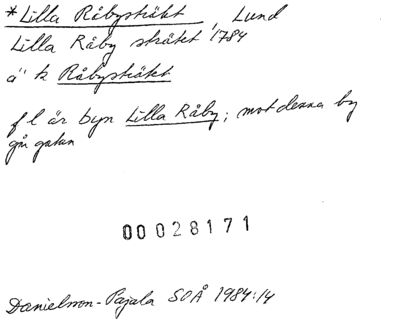 *Lilla Råbystråket, Lund
Lilla Råby stråket 1784
ä. k Råbystråket
f l är byn Lilla Råby; mot denna by
går gatan
00028171
Danielsson-Pajala SOÅ 1984:14